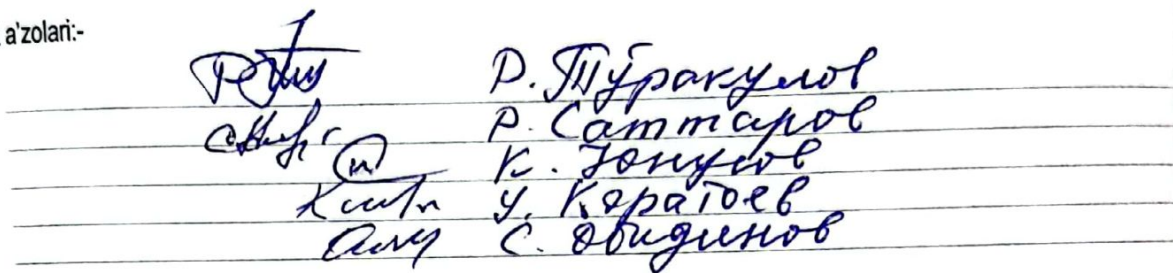 a'zolari:-
Р. Тўракулов
Р. Саттаров
К. Юнусов
У. Коратоев
С. Обидинов